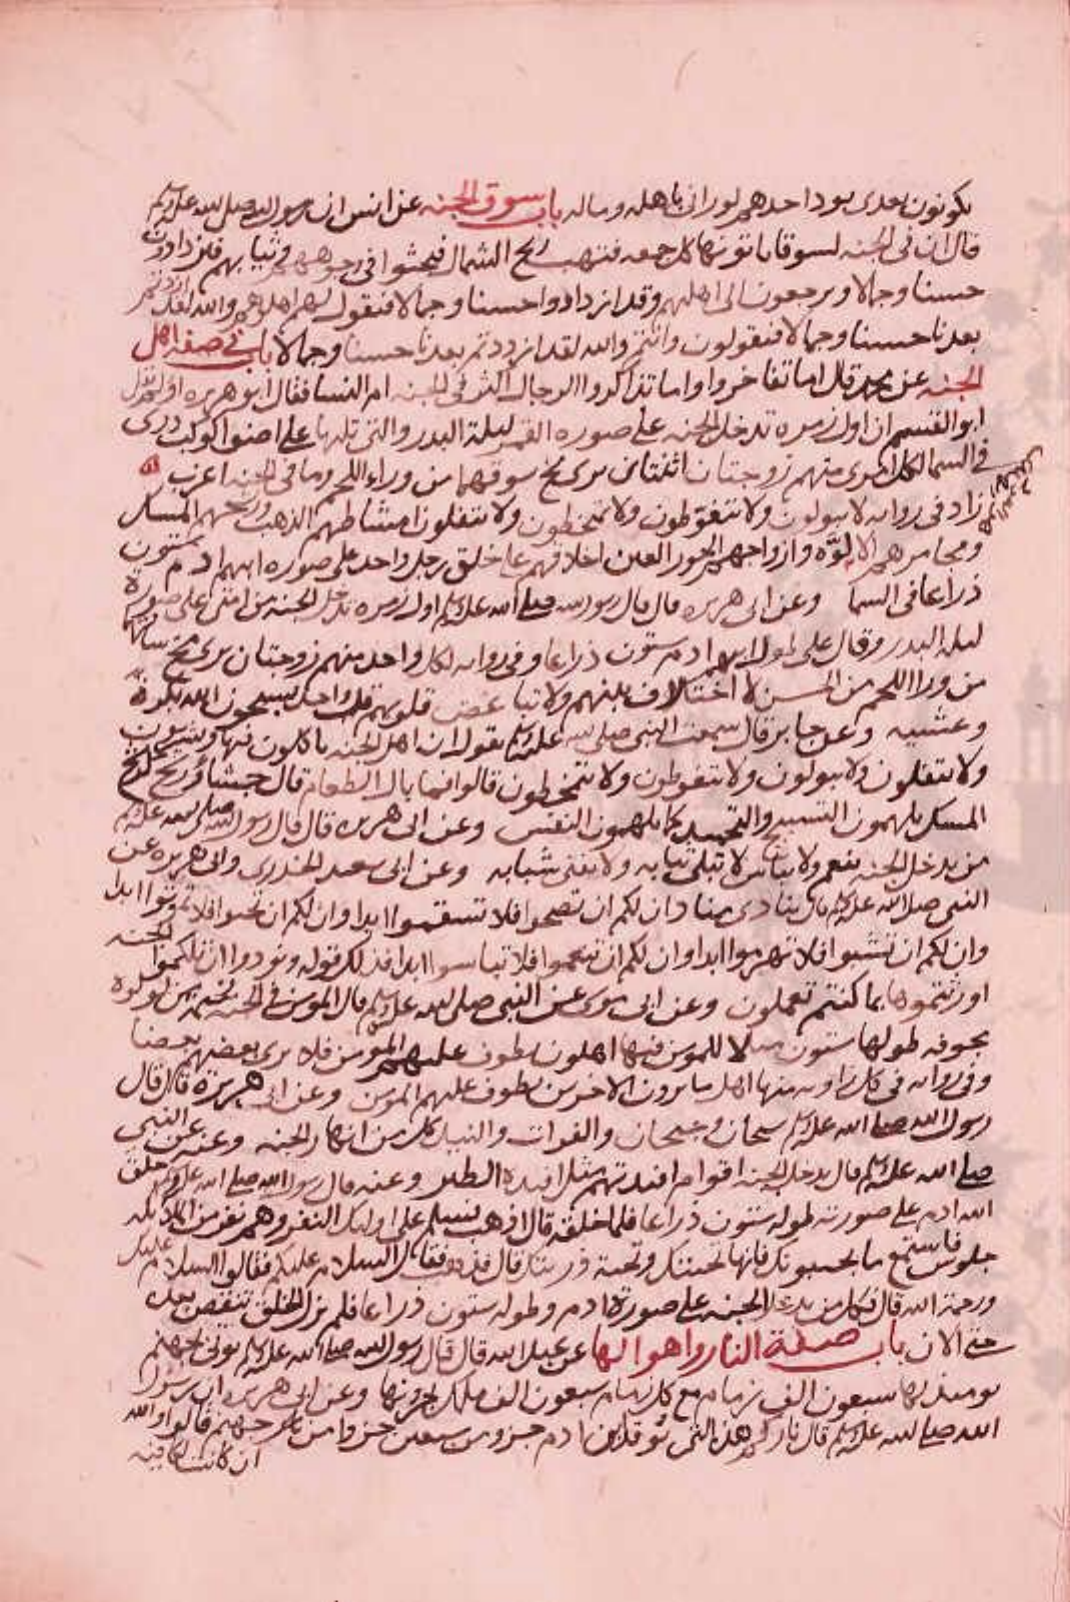 يكونون بعدى يود احدهم لو رانى باهله وماله باب سوق الجنه عن انس ان رسول الله صلى الله عليه وسلم
قال ان فى الجنه لسوقا ياتونها كل جمعه فتهب ريح الشمال فيحثوا فى وجوههم وثيابهم فيزدادون
حسنا وجمالا ويرجعون الى اهليهم وقد ازدادوا حسنا وجمالا فيقول لهم اهلوهم والله لقد ازددتم
بعدنا حسنا وجمالا فيقولون وانتم والله لقد ازددتم بعدنا حسنا وجمالا باب فى صفه اهل
الجنه عن محمد قال اما تفاخروا واما تذاكروا الرجال اكثر فى الجنه ام النسا فقال ابو هريره اولم يقل
ابو القسم ان اول زمره تدخل الجنه على صوره القمر ليله البدر والتى تليها على اضوا كوكب درى
فى السما لكل امرى منهم زوجتان اثنتان يرى مخ سوقهما من وراء اللحم وما فى الجنه اعزب
زاد فى روايه لا يبولون ولا يتغوطون ولا يمتخطون ولا يتفلون امشاطهم الذهب ورشحهم المسك
ومجامرهم الالوّه وازواجهم الحور العين اخلاقهم على خلق رجل واحد على صوره ابيهم ادم ستون
ذراعا فى السما وعن ابى هريره قال قال رسول الله صلى الله عليه وسلم اول زمره تدخل الجنه من امتى على صورة
ليله البدر وقال على طول ابيهم ادم ستون ذراعا وفى روايه لكل واحد منهم زوجتان يرى مخ ساقهما
من ورا اللحم من الحسن لا اختلاف بينهم ولا تباغض قلوبهم قلب واحد يسبحون الله بكرة
وعشيه وعن جابر قال سمعت النبى صلى الله عليه وسلم يقول ان اهل الجنه ياكلون فيها ويشربون
ولا يتفلون ولا يبولون ولا يتغوطون ولا يتمخطون قالوا فما بال الطعام قال جشاؤ ورشح كرشح
المسك يلهمون التسبيح والتحميد كما يلهمون النفس وعن ابى هريره قال قال رسول الله صلى الله عليه وسلم
من يدخل الجنه ينعم ولا يباس لا تبلى ثيابه ولا يفنى شبابه وعن ابى سعيد الخدري وابى هريره عن
النبى صلى الله عليه وسلم قال ينادى مناد ان لكم ان تصحوا فلا تسقموا ابدا وان لكم ان تحيوا فلا تموتوا ابدا
وان لكم ان تشبوا فلا تهرموا ابدا وان لكم ان تنعموا فلا تباسوا ابدا فذلك قوله ونودوا ان تلكموا الجنه
اورثتموها بما كنتم تعملون وعن ابى موسى عن النبى صلى الله عليه وسلم قال للمومن فى الجنه لخيمه من لولوة
مجوفه طولها ستون ميلا للمومن فيها اهلون يطوف عليهم المومن فلا يرى بعضهم بعضا
وفى روايه فى كل زاويه منها اهل ما يرون الاخرين يطوف عليهم المومن وعن ابى هريرة قال قال
رسول الله صلى الله عليه وسلم سيحان وجيحان والفرات والنيل كل من انهار الجنه وعنه عن النبى
صلى الله عليه وسلم قال يدخل الجنه اقوام افئدتهم مثل افئدة الطير وعنه قال رسول الله صلى الله عليه وسلم خلق
الله ادم على صورته طوله ستون ذراعا فلما خلقه قال اذهب فسلم على اولئك النفر وهم نفر من الملائكه
جلوس فاستمع ما يجيبونك فانها تحيتك وتحية ذريتك قال فذهب فقال السلام عليكم فقالوا السلام عليك
ورحمة الله قال فكل من يدخل الجنه على صورة ادم وطوله ستون ذراعا فلم يزل الخلق تنقص بعده
حتى الان باب صفة النار واهوالها عن عبد الله قال قال رسول الله صلى الله عليه وسلم يوتى بجهنم
يومئذ لها سبعون الف زمام مع كل زمام سبعون الف ملك يجرونها وعن ابى هريره ان رسول
الله صلى الله عليه وسلم قال ناركم هذه التى توقد ابن ادم جزو من سبعين جزوا من نار جهنم قالوا والله
ان كانت لكافيه